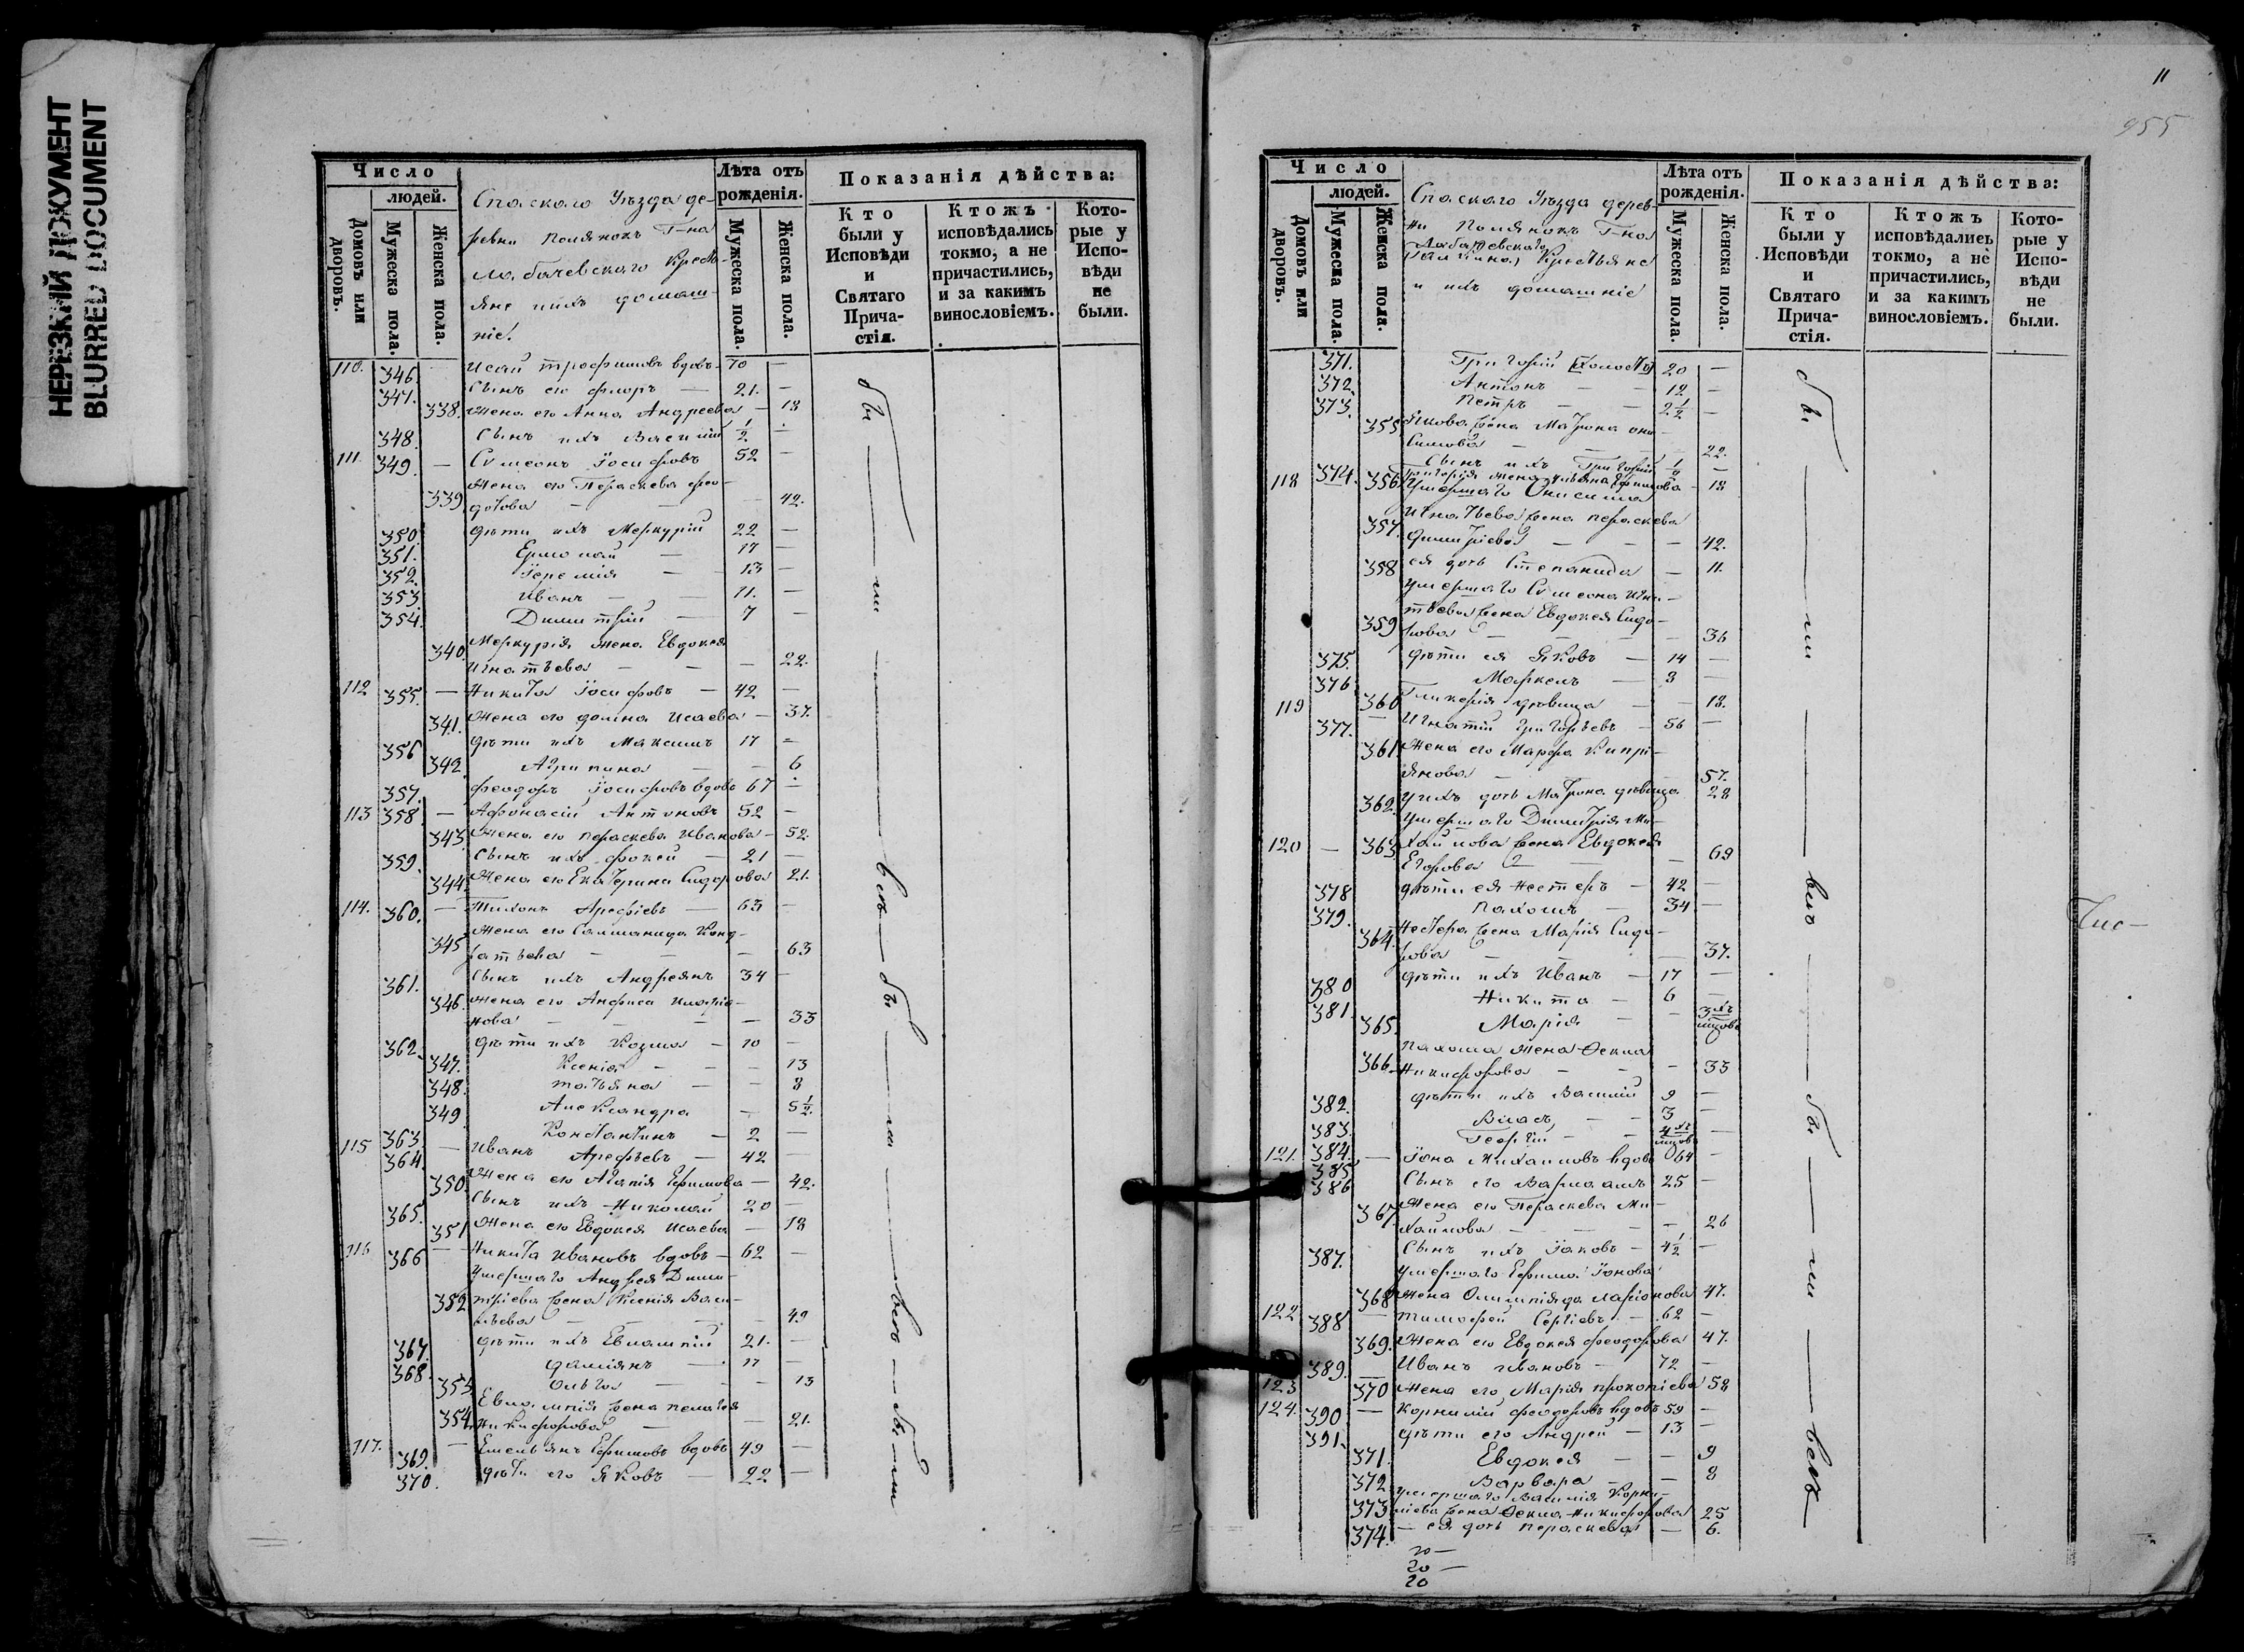 НЕРЕЗКИЙ ДОКУМЕНТ
BLURRED DOCUMENT
Число
людей.
Домовъ или дворовъ.
Мужеска пола.
Женска пола.
Спаскаго Уѣзда де-
ревни Полянокъ Г-на
Крестья-
яне и ихъ домаш-
ніе.
Лѣта отъ рожденія.
Мужеска пола.
Женска пола.
Показанія дѣйства:
Кто были у Исповѣди и Святаго Прича-стія.
Ктожъ исповѣдались токмо, а не причастились, и за какимъ винословіемъ.
Кото-рые у Испо-вѣди не были.
110. 346. — Исай Трофимовъ вдовъ — 70 —
347. Сынъ его Флоръ — 21. —
338. Жена его Анна Андреева — 18
348. Сынъ ихъ Василій 1/2 —
111. 349. — Симеонъ Іосифовъ 52 —
Жена его Параскева Фео-
339 дотова — — 42.
350 Дѣти ихъ Меркурій 22 —
351. Ермолай — 17 —
352. Іеремія — 13 —
353. Иванъ — 11. —
354. Димитрій — 7 —
340. Меркурія жена Евдокея
Игнатьева — — — 22.
112 355. — Никита Іосифовъ — 42 —
341. Жена его Домна Исаева — 37.
356 Дѣти ихъ Максимъ 17 —
342. Агрипина — — 6
357. Феодоръ Іосифовъ вдовъ 67 —
113 358 — Афонасій Антоновъ 52 —
343. Жена его Пераскева Иванова — 52.
359. Сынъ ихъ Фокей — 21 —
344. Жена его Екатерина Сидорова 21.
114. 360. — Тихонъ Арефіевъ — 63 —
Жена его Саломанида Конд-
345 ратьева — — — 63
361. Сынъ ихъ Андреянъ 34 —
346. Жена его Анфиса Иларіо-
нова — — — — 33
362. Дѣти ихъ Козма — 10 —
347. Ксенія — — — 13
348. Татьяна — — 8
349. Александра — 5 1/2.
363. Константинъ — 2 —
115 364. — Иванъ Арефьевъ — 42 —
350. Жена его Агапія Ефимова — 42.
365. Сынъ ихъ Николай 20 —
351 Жена его Евдокея Исаева — 18
116 366 — Никита Ивановъ вдовъ — 62 —
Умершаго Андрея Дими-
352 тріева жена Ксенія Васи-
льева — — — — 49
367. Дѣти ихъ Евлампій 21. —
368. Даміянъ — 17 —
353 Ольга — — — 13
Евлампія жена Пелагея
354. Никифорова — — 21.
117. 369. — Емельянъ Ефимовъ вдовъ 49 —
370. Дѣти его Яковъ — 22 —
бы — ли — велъ — бы — ли — велъ — бы — ли
11
955
Число
людей.
Домовъ или дворовъ.
Мужеска пола.
Женска пола.
Спаскаго Уѣзда дерев-
ни Полянокъ Г-на
Крестьяне
и ихъ домашніе
Лѣта отъ рожденія.
Мужеска пола.
Женска пола.
Показанія дѣйства:
Кто были у Исповѣди и Святаго Прича-стія.
Ктожъ исповѣдались токмо, а не причастились, и за какимъ винословіемъ.
Кото-рые у Испо-вѣди не были.
371. Григорій (холостъ) 20 —
372. Антонъ — — 12 —
373. Петръ — — 2 1/2 —
355 Якова жена Матрона Они-
симова — — 22.
374. Сынъ ихъ Григорій 1/2 —
356. Григорія жена Ульяна Ефимова — 18
118 Умершаго Онисима
Игнатьева жена Пераскева
357. Димитріева — — — 42.
358 ея дочь Степанида — 11.
Умершаго Симеона Игна-
тьева жена Евдокея Сидо-
359 рова — — — — 36
375. Дѣти ея Яковъ — 14 —
376 Маркелъ — 8 —
360 Гликерія дѣвица — — 18.
119 377. — Игнатій Григорьевъ — 56 —
361. Жена его Марфа Кипрі-
янова — — — 57.
362. У ихъ дочь Матрона дѣвица 28
Умершаго Димитрія Ми-
120 — 363 хайлова жена Евдокея
Егорова — — — 69
378 Дѣти ея Нестеръ — 42 —
379. Пахомъ — 34 —
364. Нестера жена Марія Сидо-
рова — — — 37.
380 Дѣти ихъ Иванъ — 17 —
381. Никита — 6 —
365. Марія — — 3хъ мѣсяцовъ
366. Пахома жена Ѳекла
Никифорова — — — 33
382. Дѣти ихъ Василій 9 —
383. Власъ — — 3 —
384. Георгій — — 4хъ мѣсяцовъ —
121. 385 — Іона Михаиловъ вдовъ 64 —
386 Сынъ его Варлаамъ 25 —
367 Жена его Пераскева Ми-
хайлова — — — — 26
387. Сынъ ихъ Іаковъ — 4 1/2 —
Умершаго Ефима Іонова
368 жена Олимпіяда Ларіонова 47.
122 388 — Тимофей Сергіевъ — 62 —
369. Жена его Евдокея Феодорова 47.
389. — Иванъ Ивановъ — 72 —
123 370 Жена его Марія Прокопіева 58
124. 390 — Корнилій Феодоровъ вдовъ 59 —
391. Дѣти его Андрей — 13 —
371. Евдокея — — 9
372. Варвара — — 8
Умершаго Василія Корни-
373 ліева жена Ѳекла Никифорова 25
374. — ея дочь Пераскева — 6.
бы — ли — велъ — бы — ли — велъ
Чис-
20 —
20 —
20